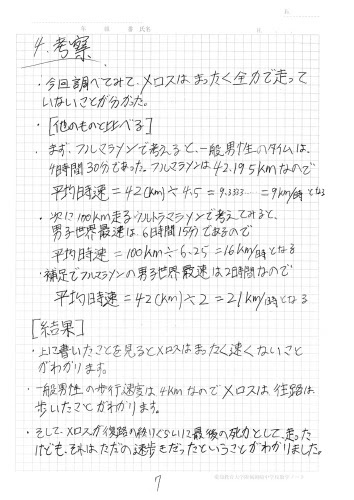 4.考察
・今回調べてみて、メロスはまったく全力で走って
いないことが分かった。
・[他のものと比べる]
・まず、フルマラソンで考えると、一般男性のタイムは、
4時間30分であった。フルマラソンは42.195kmなので
平均時速=42(km)÷4.5=9.3333……=9km/時となる
・次に100km走るウルトラマラソンで考えてみると、
男子世界最速は、6時間15分であるので
平均時速=100km÷6.25=16km/時となる
・補足でフルマラソンの男子世界最速は2時間なので
平均時速=42(km)÷2=21km/時となる
[結果]
・上に書いたことを見るとメロスはまったく速くないこと
がわかります。
・一般男性の歩行速度は4kmなのでメロスは往路は
歩いたことがわかります。
・そして、メロスが復路の終りぐらいに最後の死力として走った
けども、それはただの速歩きだったということがわかりました。
7